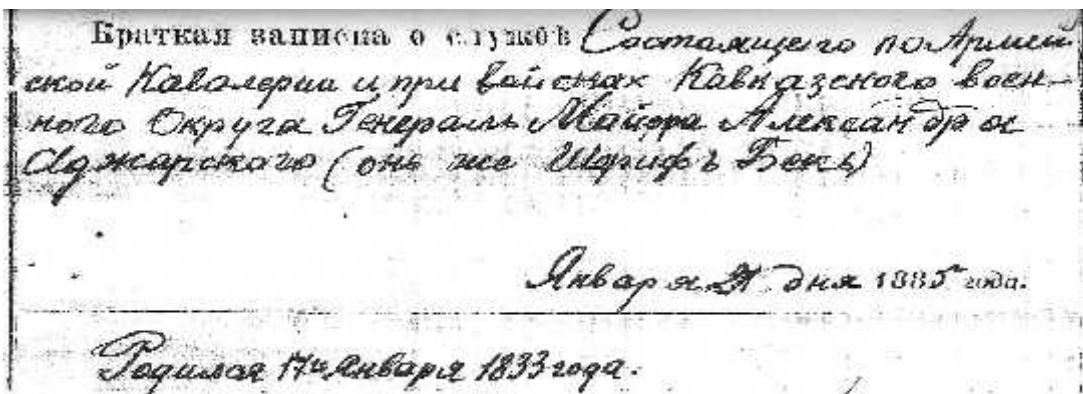 Краткая записка о службѣ Состоящаго по Армей
ской Кавалеріи и при войскахъ Кавказскаго воен-
наго Округа Генералъ Майора Александра
Аджарскаго (онъ же Шерифъ Бекъ)
Января 21 дня 1885 года.
Родился 17го Января 1833 года.